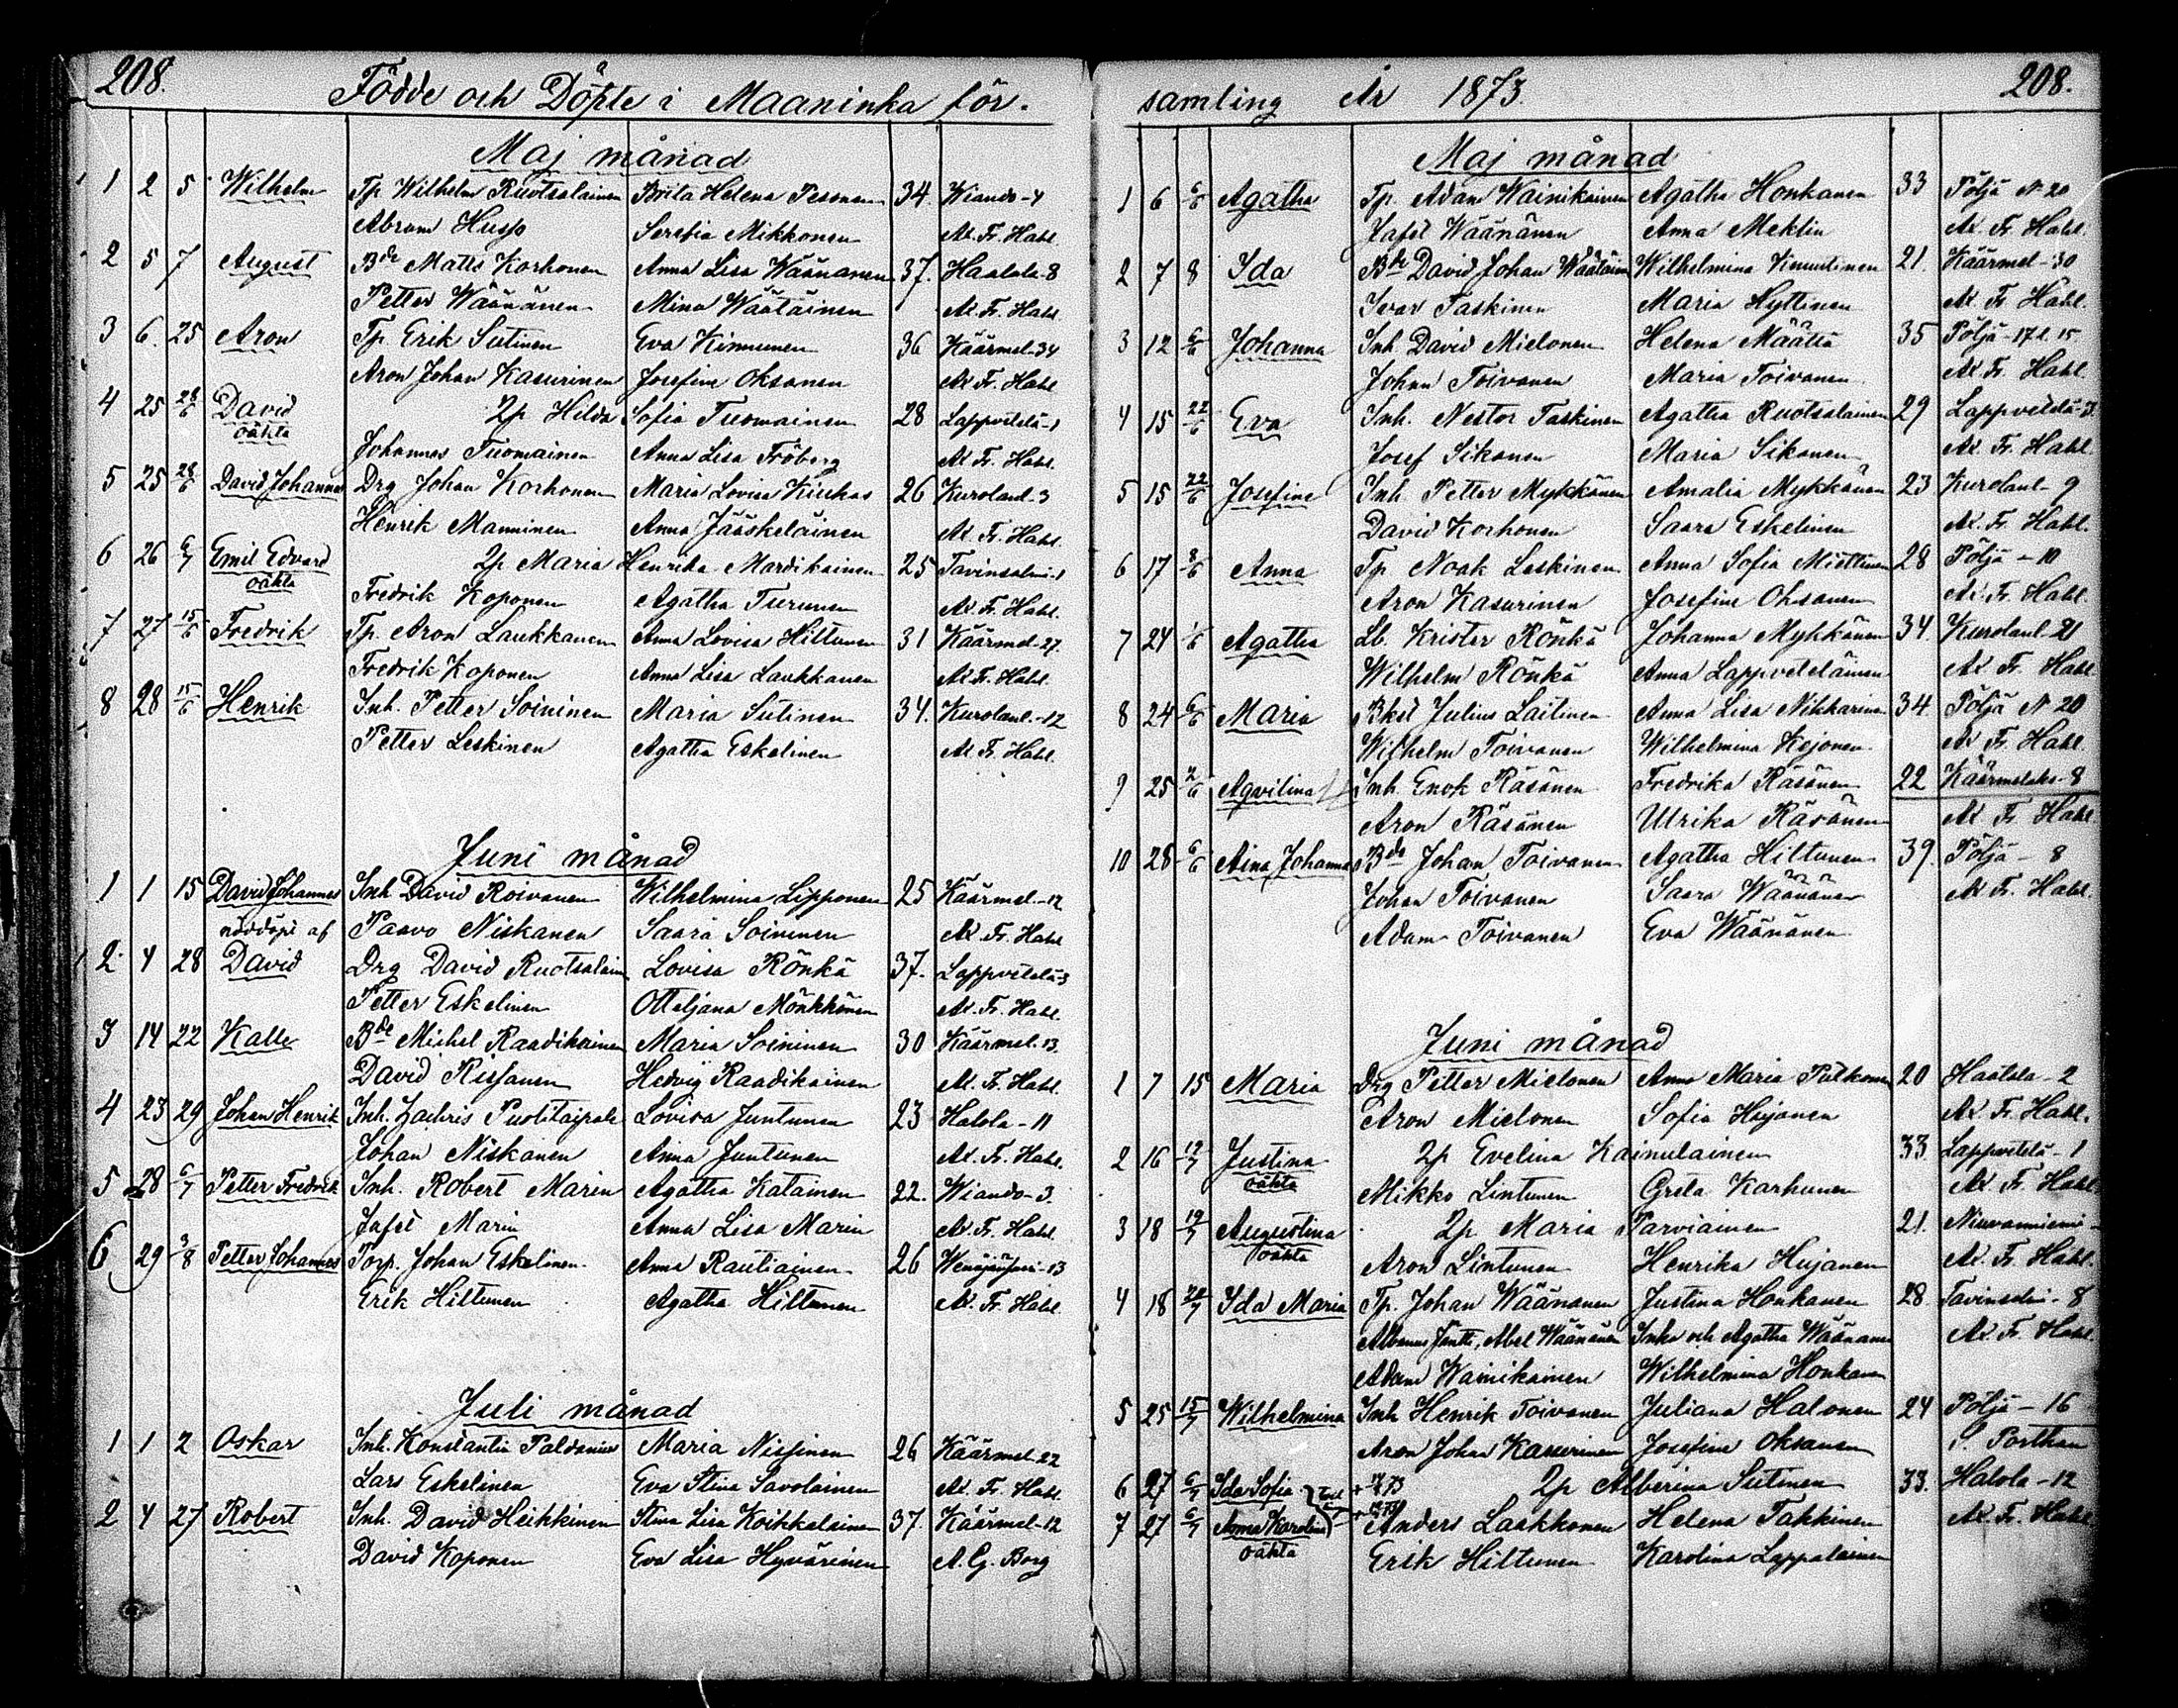 208.
Födde och Döpte i Maaninka för-
Maj månad
1 2 5 Wilhelm Tp Wilhelm Ruotsalainen Brita Helena Pesonen 34. Wiando-4
Abram Husso Serafia Mikkonen Ax. Fr. Hahl
2 5 7 August Bde Matts Korhonen Anna Lisa Wäänänen 37. Haatala-8
Petter Wäänänen Mina Wäätäinen Ax. Fr. Hahl
3 6. 25 Aron Tp Erik Sutinen Eva Kinnunen 36 Käärmel-34
Aron Johan Kasurinen Josefine Oksanen Ax Fr. Hahl
4 25 28/6 David 2p Hilda Sofia Tuomainen 28 Lappvetelä-1
oäkta
Johannes Tuomainen Anna Lisa Fröberg Ax Fr. Hahl.
5 25 28/6 David Johannes Drg Johan Korhonen Maria Lovisa Kiukas 26 Kurolanl-3
Henrik Manninen Anna Jääskeläinen Ax. Fr. Hahl.
6 26 6/7 Emil Edvard 2p Maria Henrika Mardikainen 25 Tavinsalmi-1
oäkta
Fredrik Koponen Agatha Turunen Ax. Fr. Hahl.
7 27 15/6 Fredrik Tp. Aron Laukkanen Anna Lovisa Hiltunen 31 Käärmel-27.
Fredrik Koponen Anna Lisa Laukkanen Ax Fr. Hahl.
8 28 15/6 Henrik Inh. Petter Soininen Maria Sutinen 34. Kurolanl.-12
Petter Leskinen Agatha Eskelinen Ax Fr. Hahl.
Juni månad
1 1 15 David Johannes Inh David Roivanen Wilhelmina Lipponen 25 Käärmel-12
nöddöpt af Paavo Niskanen Saara Soininen Ax. Fr. Hahl
2. 4 28 David Drg David Ruotsalain Lovisa Rönkä 37. Lappvetelä-3
Petter Eskelinen Otteljana Mönkkönen Ax. Fr. Hahl.
3 14 22 Kalle Bde Michel Raadikainen Maria Soininen 30 Käärmel.13.
David Rissanen Hedvig Raadikainen Ax. Fr. Hahl.
4 23 29 Johan Henrik Inh. Zachris Puolitaipale Lovisa Juntunen 23 Halola-11
Johan Niskanen Anna Juntunen Ax. Fr. Hahl.
5 28 6/7 Petter Fredrik Inh. Robert Marin Agatha Katainen 22. Wiando-3.
Jafet Marin Anna Lisa Marin Ax. Fr. Hahl.
6 29 3/8 Petter Johannes Torp. Johan Eskelinen Anna Rautiainen 26 Wenäjänsaari-13
Erik Hiltunen Agatha Hiltunen Ax. Fr. Hahl.
Juli månad
1 1 2 Oskar Inh. Konstantin Paldanius Maria Nissinen 26 Käärmel-22
Lars Eskelinen Eva Stina Savolainen Ax. Fr. Hahl.
2 4 27 Robert Inh. David Heikkinen Stina Lisa Koikkalainen 37. Käärmel-12
David Koponen Eva Lisa Hyvärinen A. G. Borg
samling År 1873. 208.
Maj månad
1 6 6/6 Agatha Tp. Adam Wainikainen Agatha Honkanen 33 Pöljä N 20
Jafet Wäänänen Anna Meklin Ax. Fr. Hahl.
2 7 8 Ida Bde David Johan Wäätäinen Wilhelmina Knuutinen 21. Käärmel-30
Ivar Taskinen Maria Hyttinen Ax Fr. Hahl.
3 12 6/6 Johanna Inh David Mielonen Helena Määttä 35 Pöljä-17 l. 15
Johan Toivanen Maria Toivanen Ax Fr. Hahl.
4 15 22/6 Eva Inh. Nestor Taskinen Agatha Ruotsalainen 29 Lappvetelä-3
Josef Sikanen Maria Sikanen Ax Fr. Hahl.
5 15 22/6 Josefine Inh. Petter Mykkänen Amalia Mykkänen 23 Kurolanl-9
David Korhonen Saara Eskelinen Ax. Fr. Hahl.
6 17 8/6 Anna Tp Noak Leskinen Anna Sofia Miettinen 28 Pöljä-10
Aron Kasurinen Josefine Oksanen Ax. Fr. Hahl.
7 24 1/6 Agatha Lb. Krister Rönkä Johanna Mykkänen 34 Kurolanl-21
Wilhelm Rönkä Anna Lappveteläinen Ax Fr. Hahl
8 24 6/6 Maria Bksl Julius Laitinen Anna Lisa Nikkarinen 34. Pöljä N 20
Wilhelm Toivanen Wilhelmina Kejonen Ax Fr. Hahl.
9 25 2/6 Agvilina Inh. Enok Räsänen Fredrika Räsänen 22 Käärmelaks-8
Aron Räsänen Ulrika Räsänen Ax Fr Hahl
10 28 6/6 Aina Johanna Bde Johan Toivanen Agatha Hiltunen 39. Pöljä-8
Johan Toivanen Saara Wäänänen Ax Fr. Hahl.
Adam Toivanen Eva Wäänänen
Juni månad
1 7 15 Maria Drg Petter Mielonen Anna Maria Pulkonen 20 Haatala-2
Aron Mielonen Sofia Hujanen Ax Fr. Hahl.
2 16 19/7 Justina 2p Evelina Kainulainen 33 Lappvetelä-1
oäkta
Mikko Lintunen Greta Karhunen Ax. Fr. Hahl
3 18 19/7 Augustina 2p Maria Parviainen 21. Niuvanniemi-
oäkta
Aron Lintunen Henrika Hujanen Ax. Fr. Hahl.
4 18 20/7 Ida Maria Tp. Johan Wäänänen Justina Honkanen 28. Tavinsalmi-8
Albanus Jantti, Abel Wäänänen Inka och Agatha Wäänänen Ax. Fr. Hahl.
Adam Wainikainen Wilhelmina Honkanen
5 25 15/7 Wilhelmina Inh Henrik Toivanen Juliana Halonen 24 Pöljä-16
Aron Johan Kasurinen Josefine Oksanen Porthan
6 27 6/7 Ida Sofia 2p Alberina Sutinen 33. Halola-12
7 27 6/7 Anna Karolina Anders Laakkonen Helena Takkinen Ax. Fr. Hahl
oäkta Erik Hiltunen Karolina Lappalainen